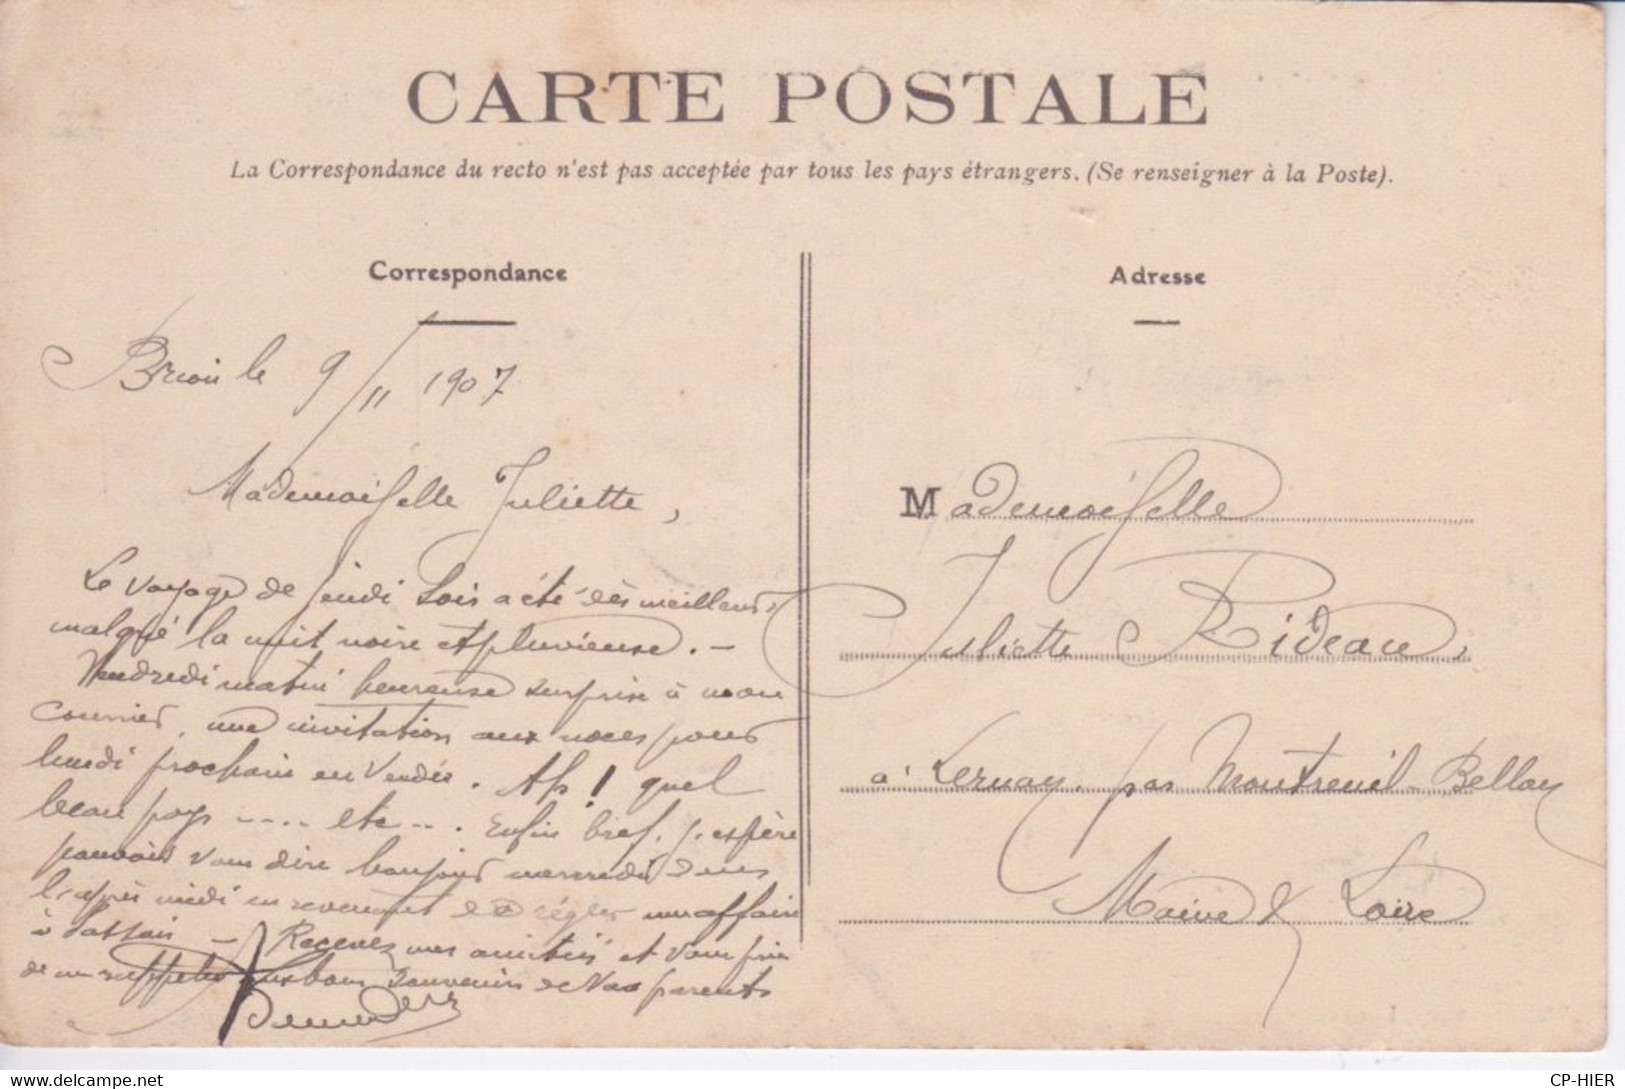 CARTE POSTALE
La Correspondance du recto n'est pas acceptée par tous les pays étrangers. (Se renseigner à la Poste).
Correspondance
Brion le 9/11 1907
Mademoiselle Juliette,
Le voyage de jeudi soir a été des meilleurs,
malgré la nuit noire et pluvieuse. —
Vendredi matin heureuse surprise à mon
courrier, une invitation aux noces pour
lundi prochain en Vendée. Ah! quel
beau pays .... etc... Enfin bref. j'espère
pouvoir vous dire bonjour mercredi dans
l'après midi en revenant de régler une affaire
à — Recevez mes amitiés et vous prie
de me rappeler aux bons souvenirs de vos parents
Adresse
Mademoiselle
Juliette Rideau,
à Lernay, par Montreuil-Bellay
Maine & Loire
CP-HIER